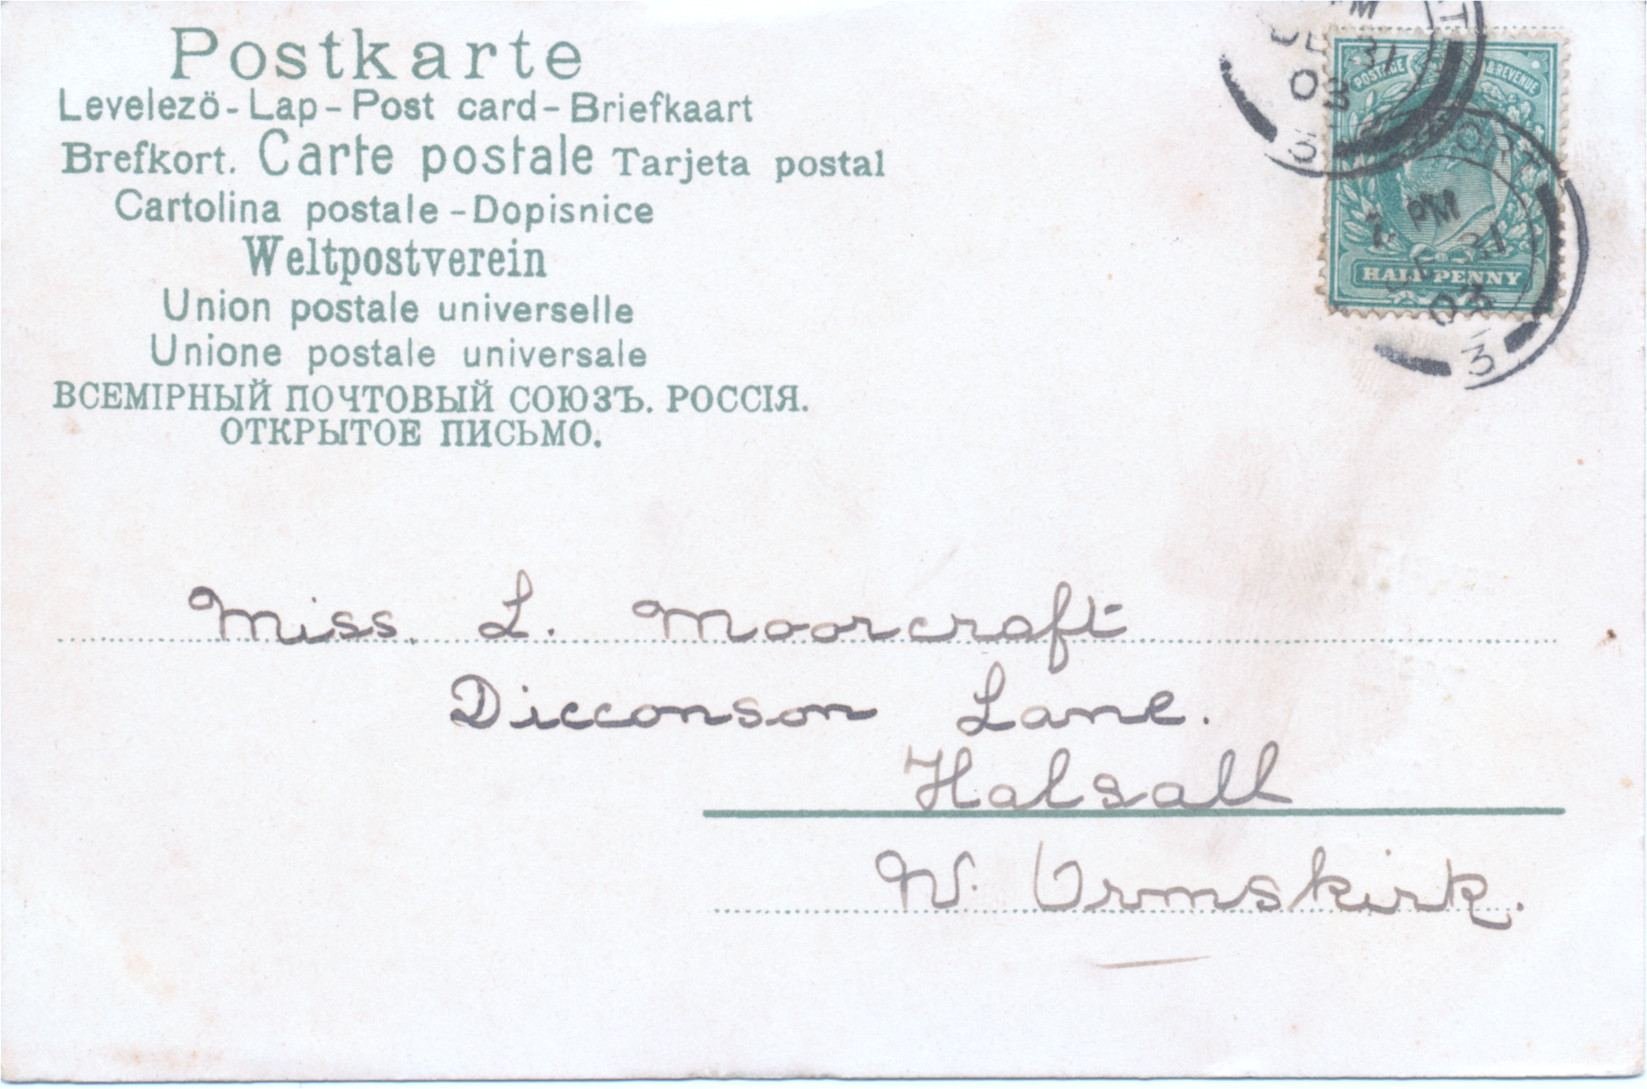 Postkarte
Levelező-Lap-Post card-Briefkaart
Brefkort. Carte postale Tarjeta postal
Cartolina postale-Dopisnice
Weltpostverein
Union postale universelle
Unione postale universale
ВСЕМІРНЫЙ ПОЧТОВЫЙ СОЮЗЪ. РОССІЯ.
ОТКРЫТОЕ ПИСЬМО.
POSTAGE & REVENUE
HALFPENNY
PM
DE 31
03
3
PM
DE 31
03
3
Miss. L. Moorcraft
Dicconson Lane.
Halsall
W. Ormskirk.